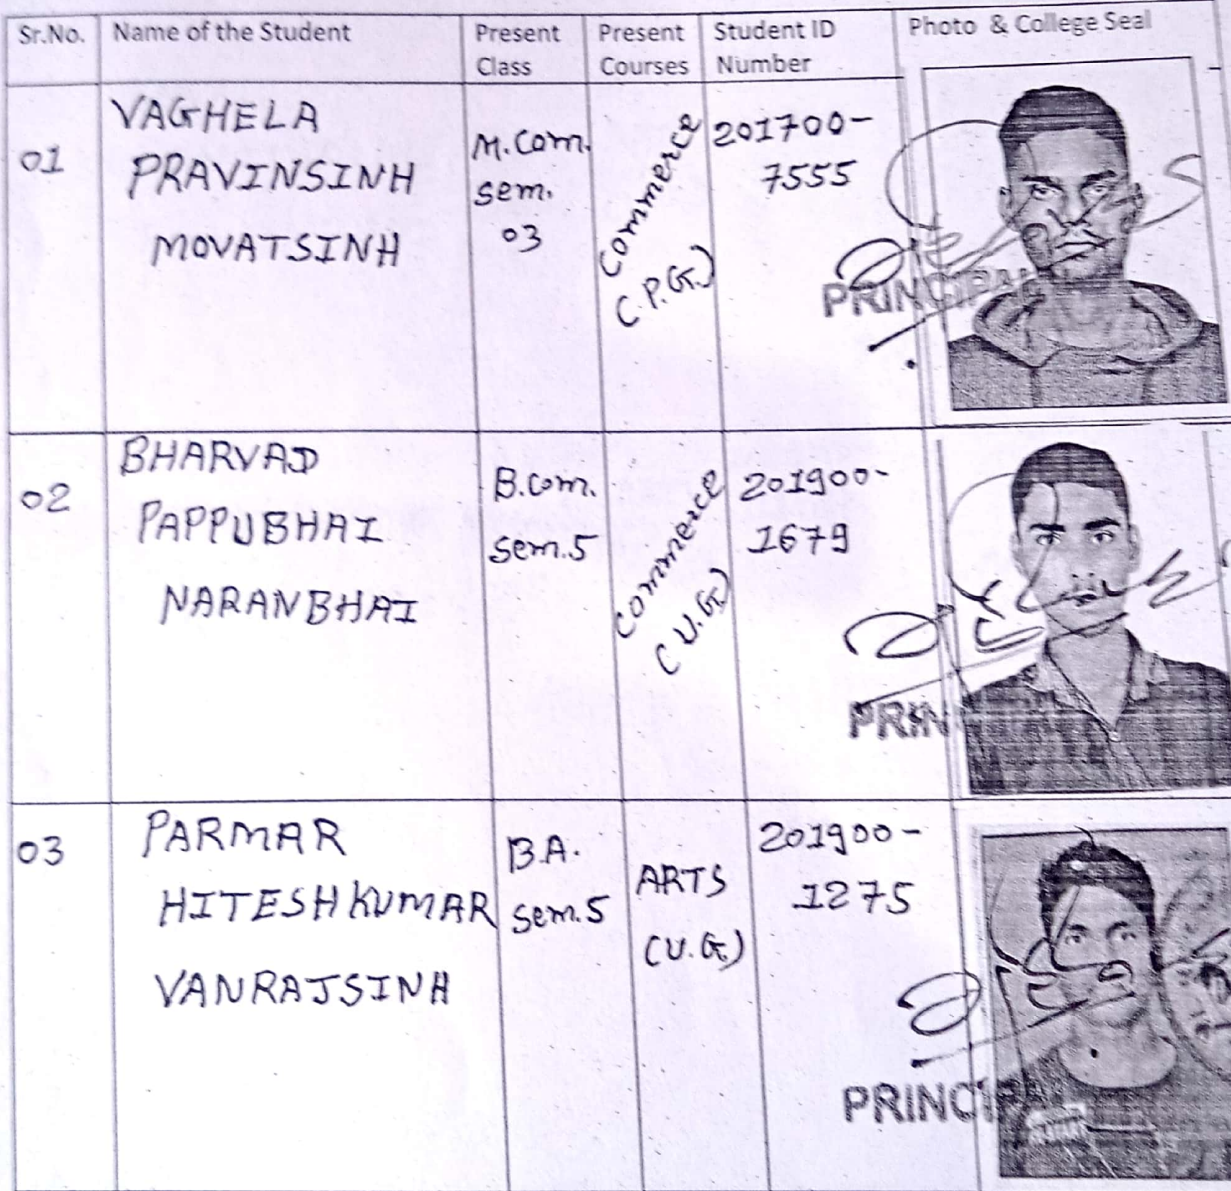 Sr.No. Name of the Student Present Class Present Courses Student ID Number Photo & College Seal
01
VAGHELA
PRAVINSINH
MOVATSINH
M.Com.
sem.
03
Commerce
(P.G.)
201700-
7555
PRINCIPAL
02
BHARVAD
PAPPUBHAI
NARANBHAI
B.Com.
sem.5
Commerce
(U.G.)
201900-
1679
PRIN
03
PARMAR
HITESHKUMAR
VANRAJSINH
B.A.
sem.5
ARTS
(U.G.)
201900-
1275
PRINCIPAL